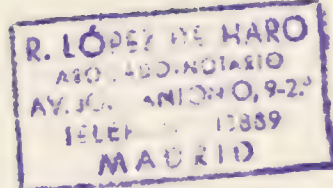 R. LÓPEZ DE HARO
ABOGADO-NOTARIO
AV. JOSÉ ANTONIO, 9-2.º
TELEF 13889
MADRID